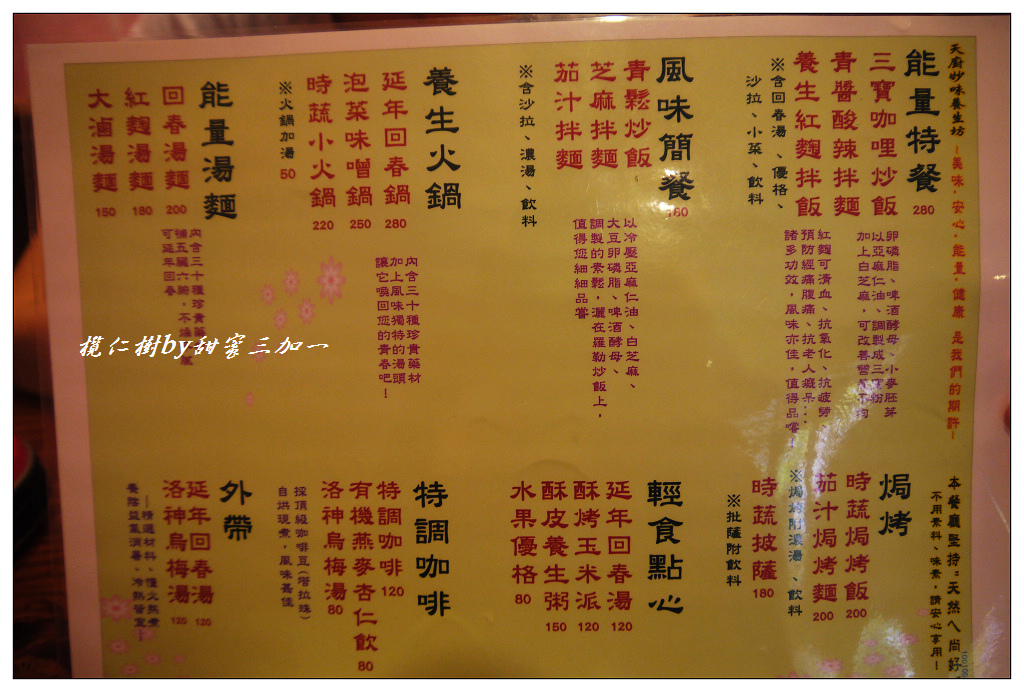 天廚妙味養生坊 ~美味,安心,能量,健康 是我們的期許~
能量特餐 280
三寶咖哩炒飯
青醬酸辣拌麵
養生紅麴拌飯
※含回春湯、優格、
沙拉、小菜、飲料
卵磷脂、啤酒酵母、小麥胚芽
以亞麻仁油、調製成三寶粉
加上白芝麻,可改善營養不均
紅麴可清血、抗氧化、抗疲勞、
預防經痛腹痛、抗老人癡呆...
諸多功效,風味亦佳,值得品嚐!
風味簡餐 160
青鬆炒飯
芝麻拌麵
茄汁拌麵
※含沙拉、濃湯、飲料
以冷壓亞麻仁油、白芝麻、
大豆卵磷脂、啤酒酵母、
調製的素鬆,灑在羅勒炒飯上,
值得您細細品嘗
養生火鍋
延年回春鍋 280
泡菜味噌鍋 250
時蔬小火鍋 220
※火鍋加湯 50
內含三十種珍貴藥材
加上風味獨特的湯頭
讓它喚回您的青春吧!
能量湯麵
回春湯麵 200
紅麴湯麵 180
大滷湯麵 150
內含三十種珍貴藥
補五臟六腑,不燥
可延年回春
欖仁樹by甜蜜三加一
本餐廳堅持:天然ㄟ尚好
不用素料、味素,請安心享用!
焗烤
時蔬焗烤飯 200
茄汁焗烤麵 200
※焗烤附濃湯、飲料
時蔬披薩 180
※批薩附飲料
輕食點心
延年回春湯 120
酥烤玉米派 120
酥皮養生粥 150
水果優格 80
特調咖啡
特調咖啡 120
有機燕麥杏仁飲 80
洛神烏梅湯 80
採頂級咖啡豆(塔拉珠)
自烘現煮,風味甚佳
外帶
延年回春湯 120
洛神烏梅湯 120
~精選材料、慢火熬煮
養陰益氣消暑、冷熱皆宜~